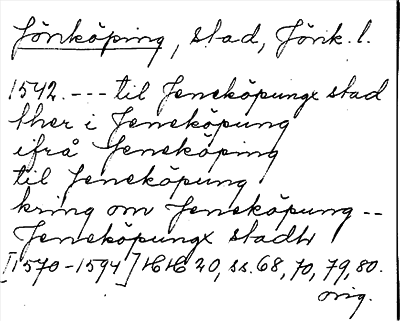 Jönköping, stad, Jönk. l.
1542. --- til Jeneköpungx stad
ther i Jeneköpung
ifrå Jeneköping
til Jeneköpung
kring om Jeneköpung --
Jeneköpungx stadh
[1570-1594] HH 20, ss. 68, 70, 79, 80.
orig.